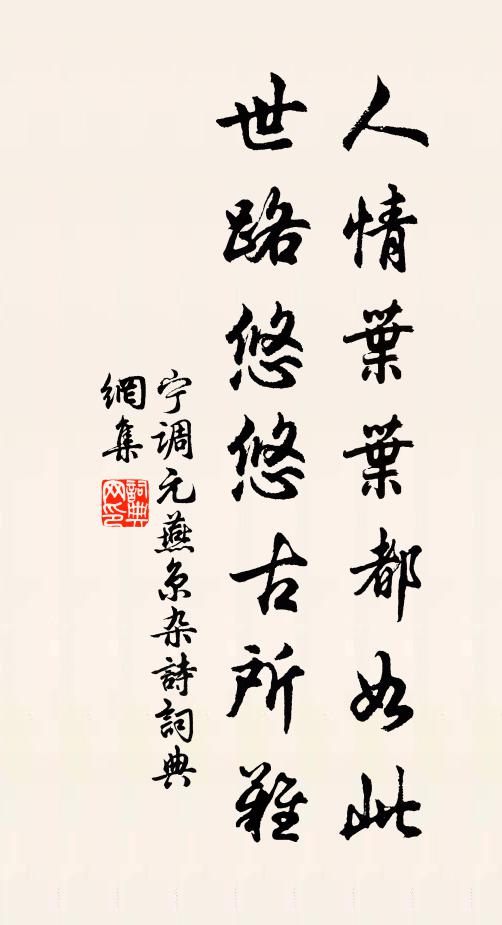 人情葉葉都如此
世路悠悠古所難
宁调元燕京杂詩詞典
網集
詞典
网印